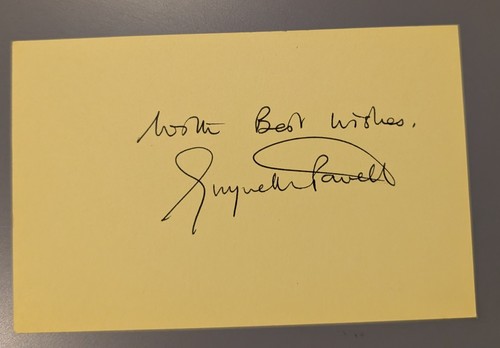 With Best Wishes.
Gwyneth Powell